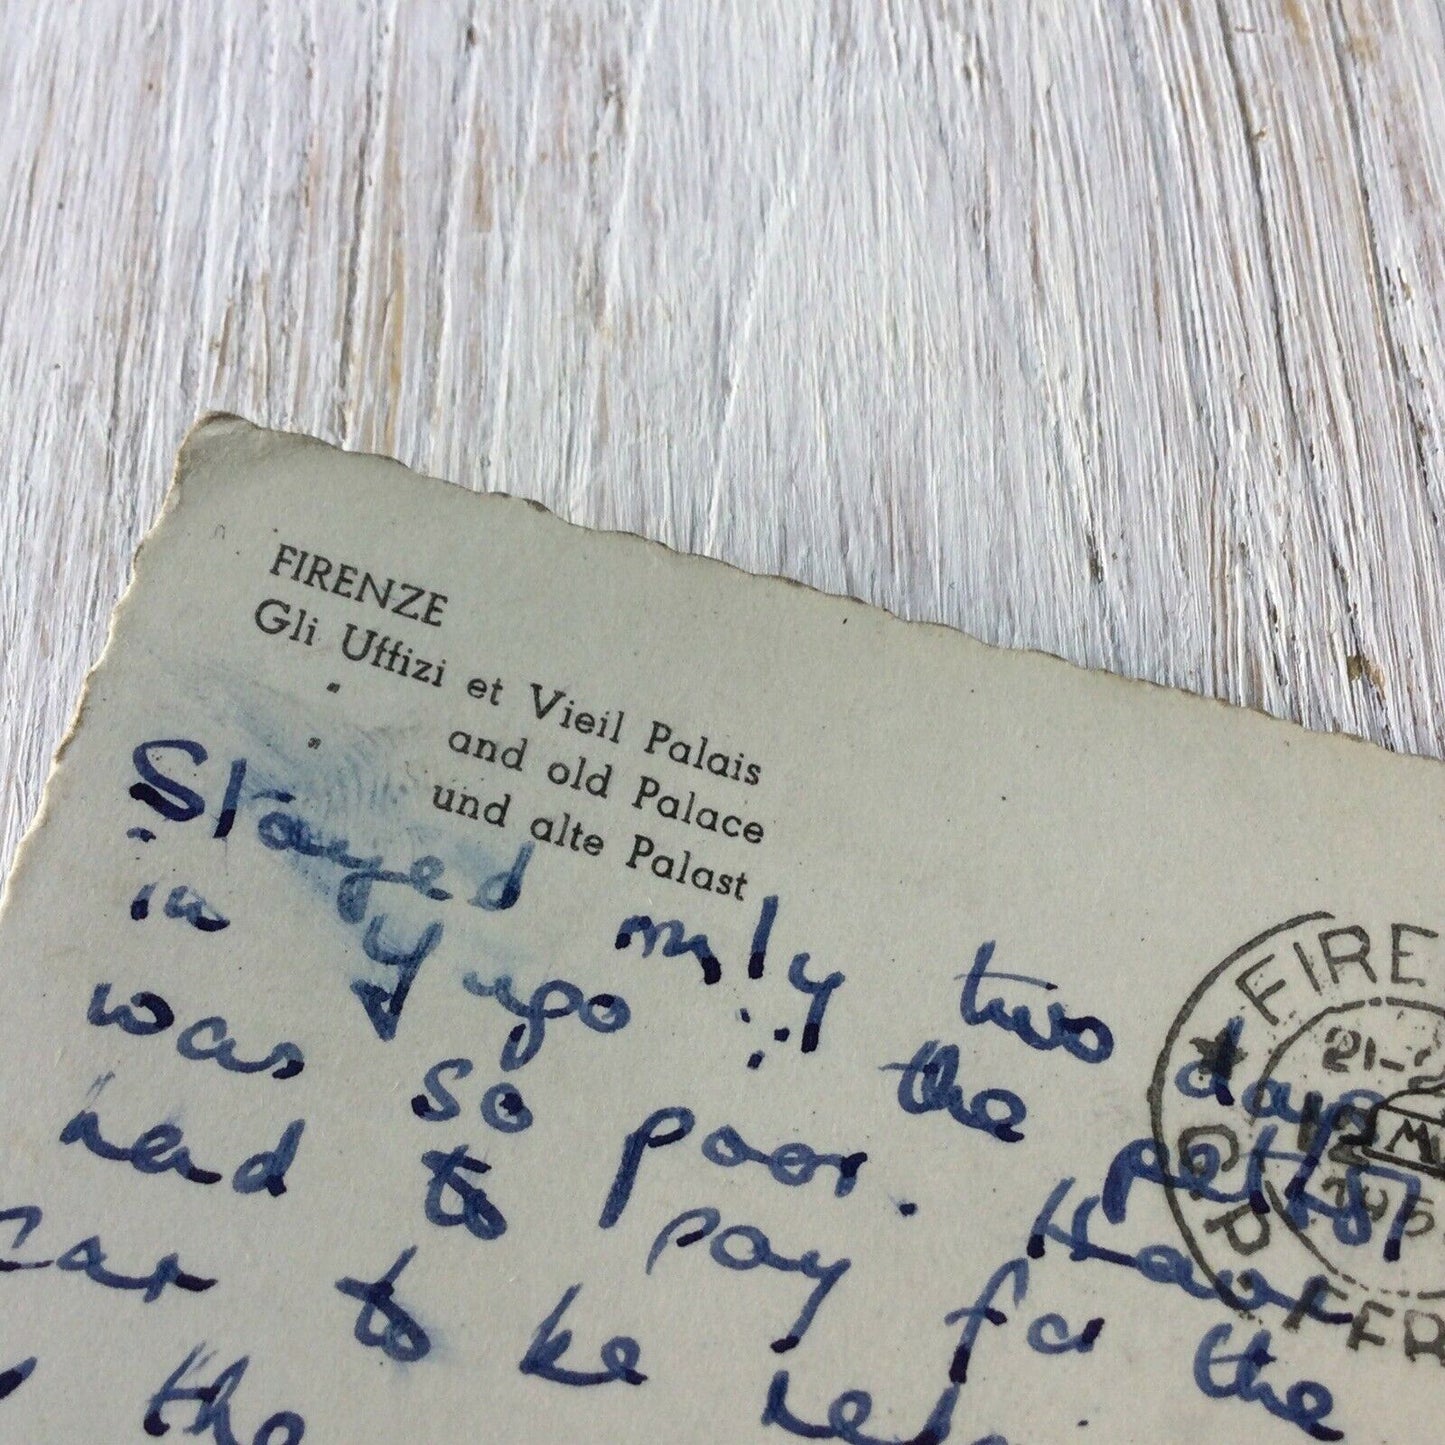 FIRENZE
Gli Uffizi et Vieil Palais
" and old Palace
" und alte Palast
Stayed only two days
in Yugo: the petrol
was so poor. Have
had to pay for the
car to be
the
FIRE
21-
12
195